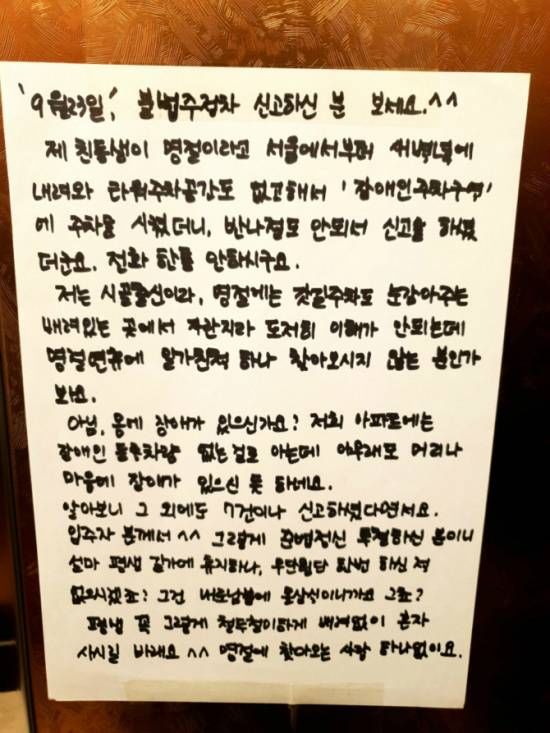 '9월23일', 불법주정차 신고하신 분 보세요.^^
제 친동생이 명절이라고 서울에서부터 새벽녘에
내려와 타워주차공간도 없고해서 '장애인주차구역'
에 주차을 시켰더니, 반나절도 안되서 신고을 하셨
더군요. 전화 한통 안하시구요.
저는 시골출신이라, 명절에는 갓길주차도 눈감아주는
배려있는 곳에서 자란지라 도저히 이해가 안되는데
명절연휴에 일가친척 하나 찾아오시지 않는 분인가
봐요.
아님, 몸에 장애가 있으신가요? 저희 아파트에는
장애인 등록차량 없는걸로 아는데 아무래도 머리나
마음에 장애가 있으신 듯 하네요.
알아보니 그 외에도 7건이나 신고하셨다면서요.
입주자 분께서 ^^ 그렇게 준법정신 투철하신 분이니
설마 평생 길가에 휴지하나, 무단횡단 한번 하신 적
없으시겠죠? 그건 내로남불에 몰상식이니까요 그쵸?
평생 꼭 그렇게 철두철미하게 배려없이 혼자
사시길 바래요 ^^ 명절에 찾아오는 사람 하나없이요.